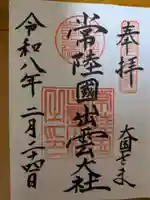 奉拝
大国さま
常陸國出雲大社
令和八年二月二十四日